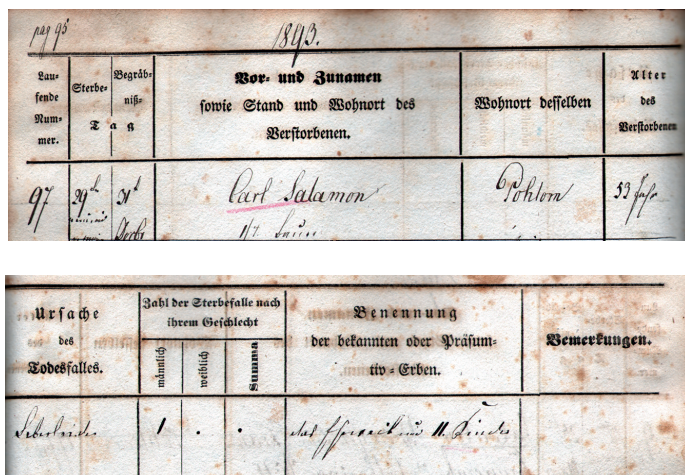 pag 95
1893.
Lau-
fende
Num-
mer.
Sterbe-
Begräb-
niß-
Tag
Vor- und Zunamen
sowie Stand und Wohnort des
Verstorbenen.
Wohnort desselben
Alter
des
Verstorbenen
97 29 31 Carl Salamon Pohlom 53 Jahr
Ursache
des
Todesfalles.
Zahl der Sterbefalle nach
ihrem Geschlecht
männlich
weiblich
Summa
Benennung
der bekannten oder Präsum-
tiv-Erben.
Bemerkungen.
1 . . das Eheweib und 11. Kinder